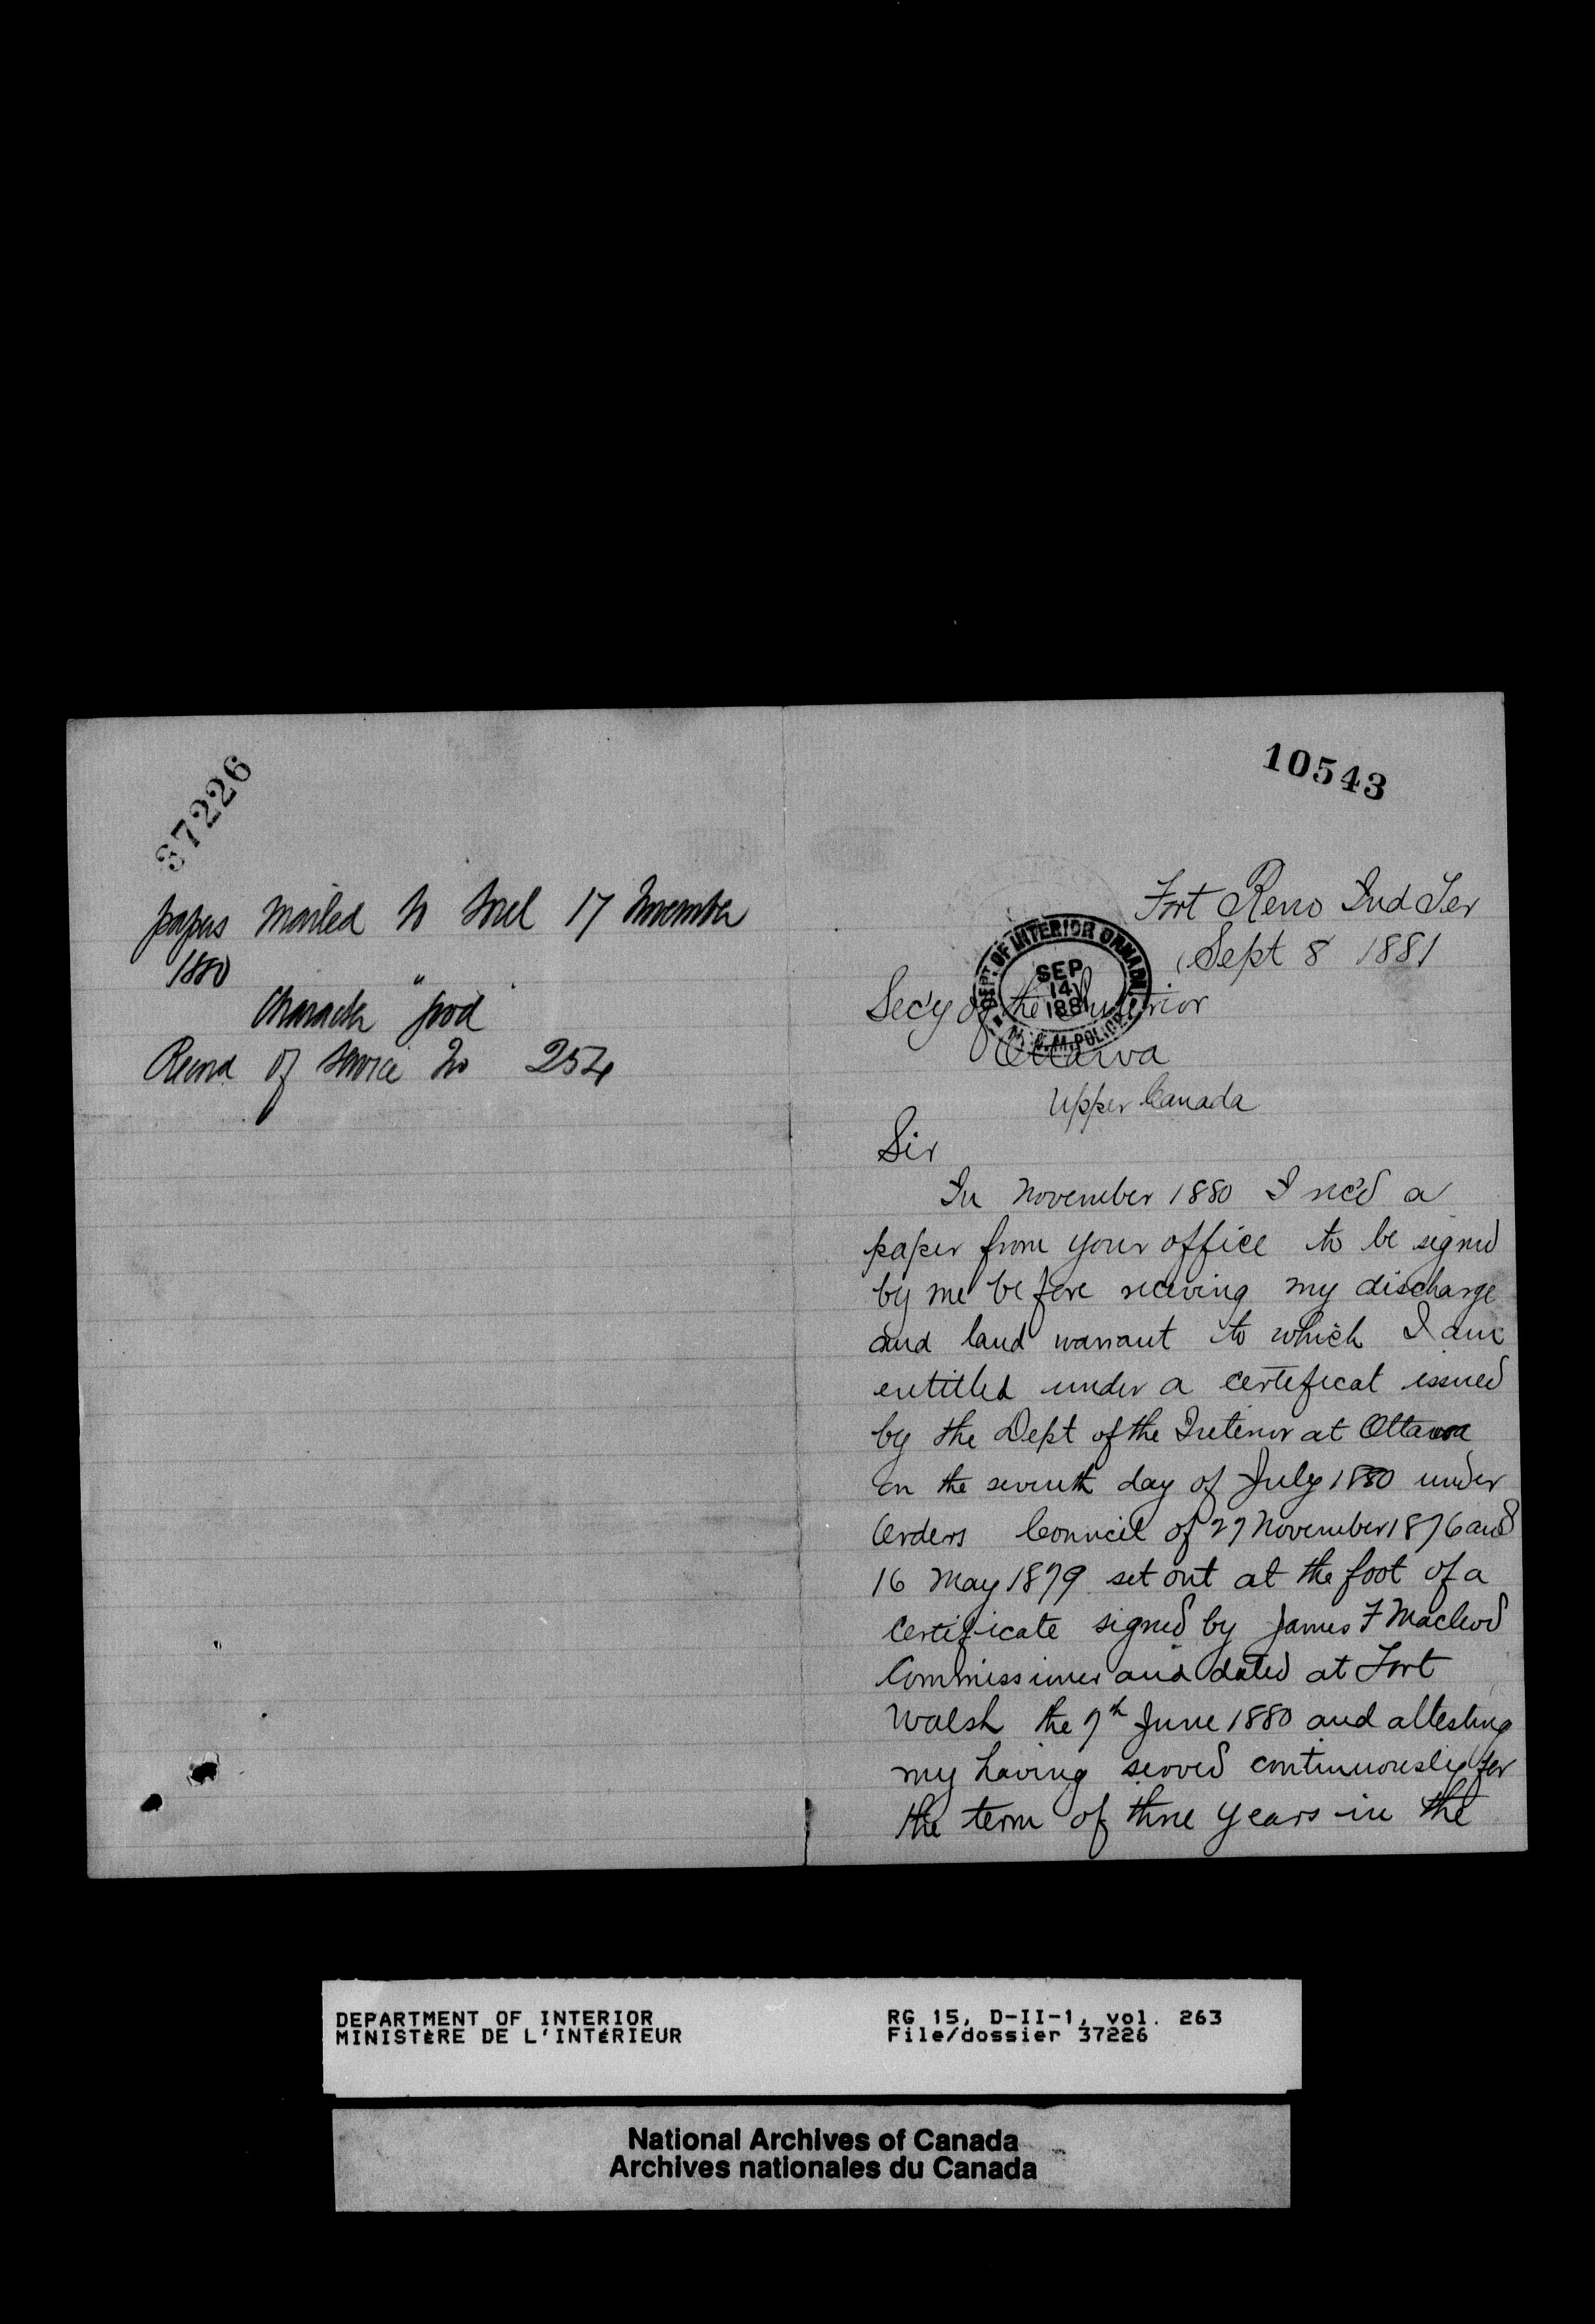 37226
papers mailed to Sorel 17 November
1880 "
Character good
Record of Service No 254
10543
Fort Reno Ind Ter
Sept 8 1881
DEPT. OF INTERIOR CANADA
SEP
14
1881
N.W.M.POLICE
Sec'y of the Interior
Ottawa
Upper Canada
Sir
In November 1880 I rec'd a
paper from your office to be signed
by me before receiving my discharge
and land warrant to which I am
entitled under a certeficat issued
by the Dept of the Interior at Ottawa
on the seventh day of July 1880 under
Orders Council of 27 November 1876 and
16 May 1879 set out at the foot of a
Certificate signed by James F Macleod
Commissioner and dated at Fort
Walsh the 7th June 1880 and attesting
my having served continuously for
the term of three years in the
DEPARTMENT OF INTERIOR
MINISTÈRE DE L'INTÉRIEUR
RG 15, D-II-1, vol. 263
File/dossier 37226
National Archives of Canada
Archives nationales du Canada